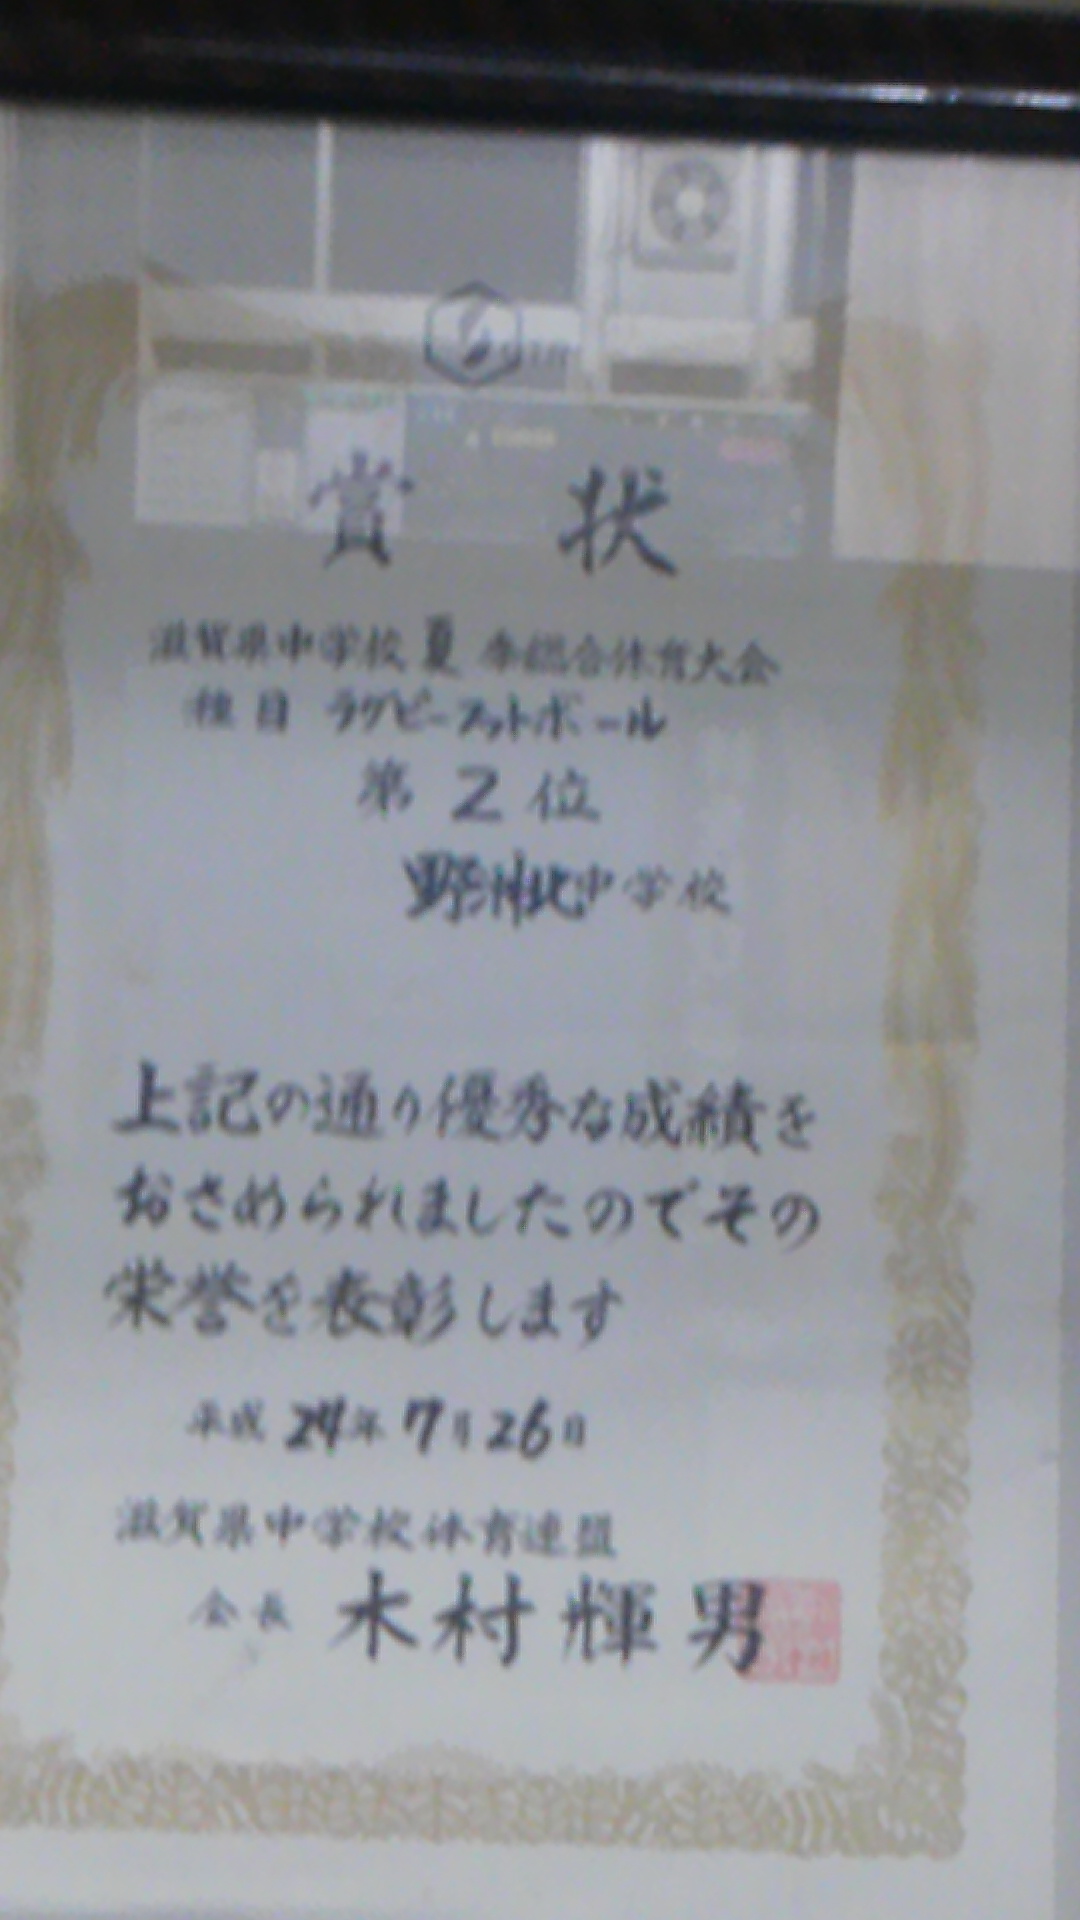 賞状
滋賀県中学校夏季総合体育大会
種目 ラグビーフットボール
第2位
野洲北中学校
上記の通り優秀な成績を
おさめられましたのでその
栄誉を表彰します
平成24年7月26日
滋賀県中学校体育連盟
会長 木村輝男